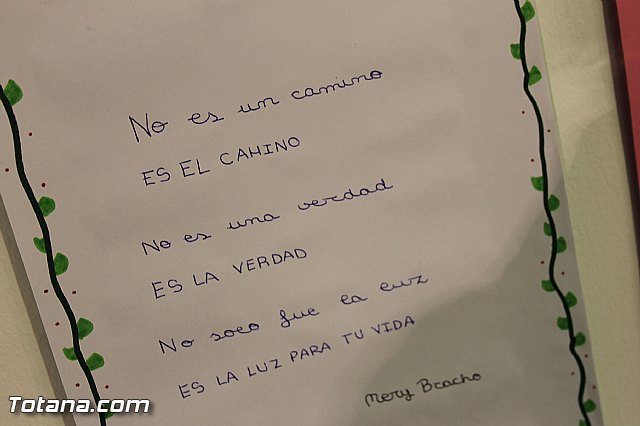 No es un camino
ES EL CAMINO
No es una verdad
ES LA VERDAD
No solo fue la luz
ES LA LUZ PARA TU VIDA
Mery Bracho
Totana.com